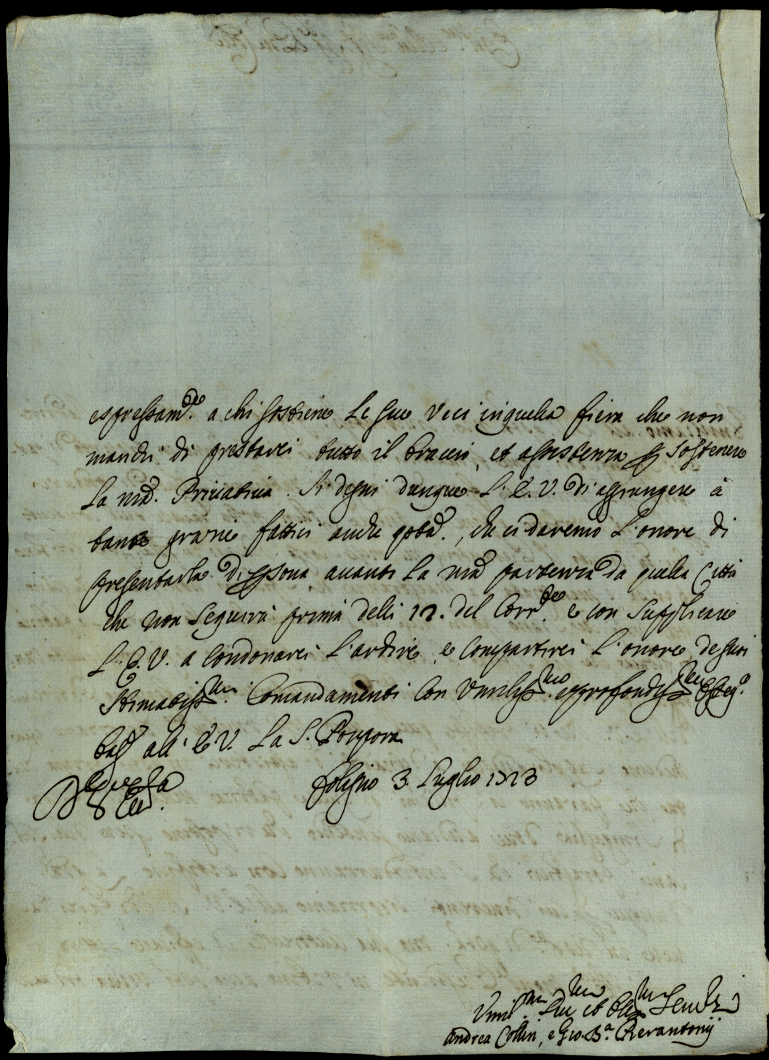 espressam.te a chi sostiene le sue veci in quella fiera che non
manchi di prestarci tutto il braccio, et assistenza p sostenere
la nra Privativa. Si degni dunque l'E.V. di aggiungere à
tante grazie fatteci anche qsta, che ci daremo l'onore di
presentarle di psona avanti la nra partenza da quella Città
che non seguirà prima delli 12. del Corr.te e con supplicare
l'E.V. a condonarci l'ardire, e compartirci l'onore de suoi
stimatiss.mi Comandamenti con umiliss.mo e profondiss.mo
all'E.V. la S. Porpora
Foligno 3. Luglio 1723
Umil.mi et Obb.mi
Andrea Collin, e Gio Ba. Pierantonij